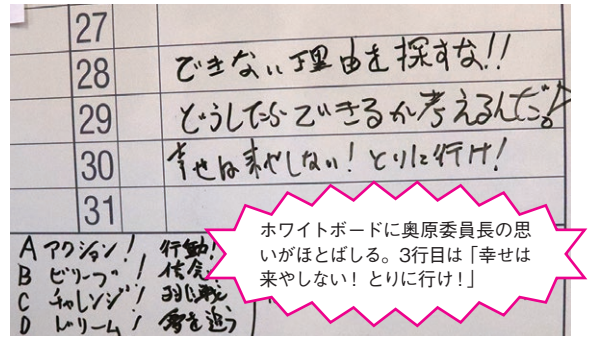 27
28 できない理由を探すな!!
29 どうしたらできるか考えるんだ!
30 幸せは来やしない! とりに行け!
31
A アクション! 行動!
B ビリーブ!
C チャレンジ!
D ドリーム! 夢を追う
ホワイトボードに奥原委員長の思
いがほとばしる。3行目は「幸せは
来やしない! とりに行け!」